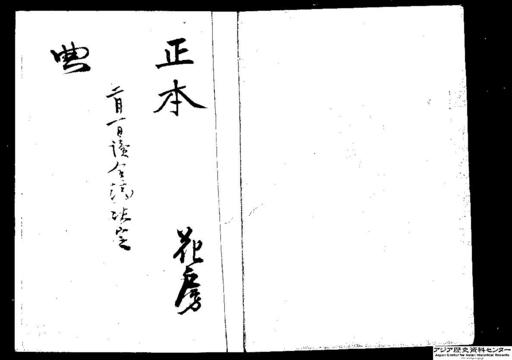 正本
花房
二月一日讀合済
典
アジア歴史資料センター
Japan Center for Asian Historical Records